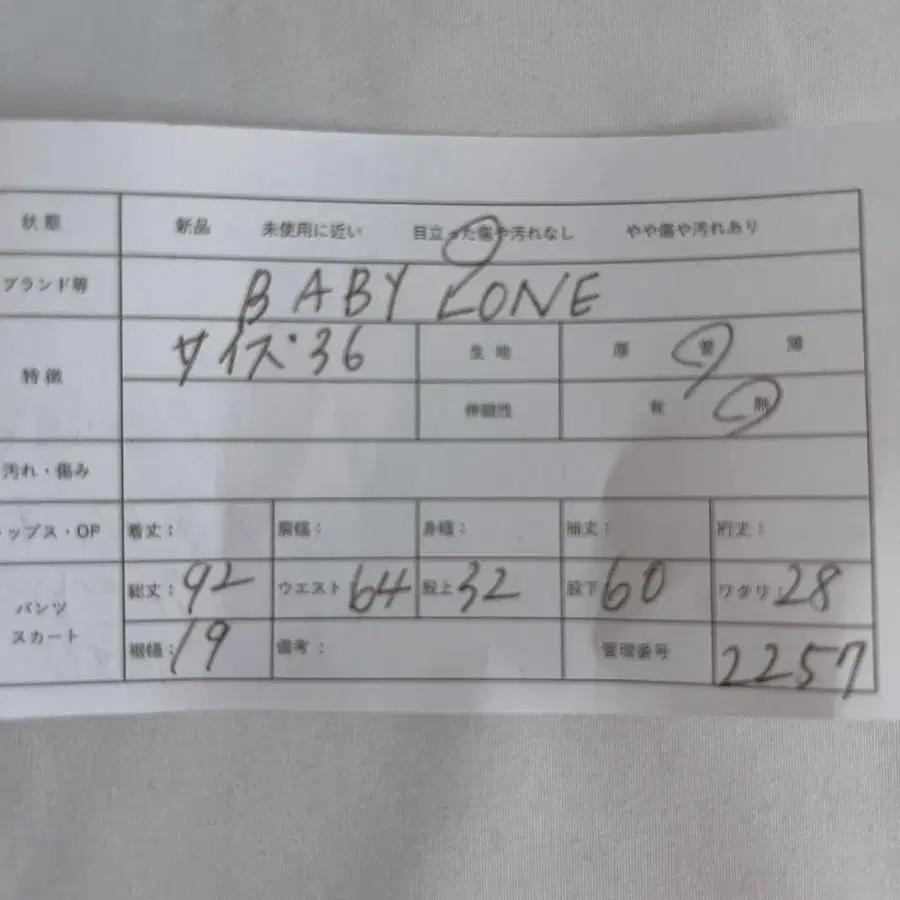 状態 新品 未使用に近い 目立った傷や汚れなし やや傷や汚れあり
ブランド等 BABYLONE
特徴 サイズ36 生地 厚 普 薄
伸縮性 有 無
汚れ・傷み
ップス・OP 着丈: 胸幅: 身幅: 袖丈: 裄丈:
パンツ スカート 総丈:92 ウエスト64 股上32 股下60 ワタリ:28
裾幅:19 備考: 管理番号 2257